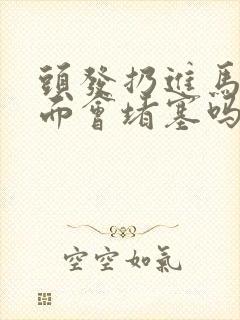 頭發扔進馬
而會堵塞嗎
空空如氣